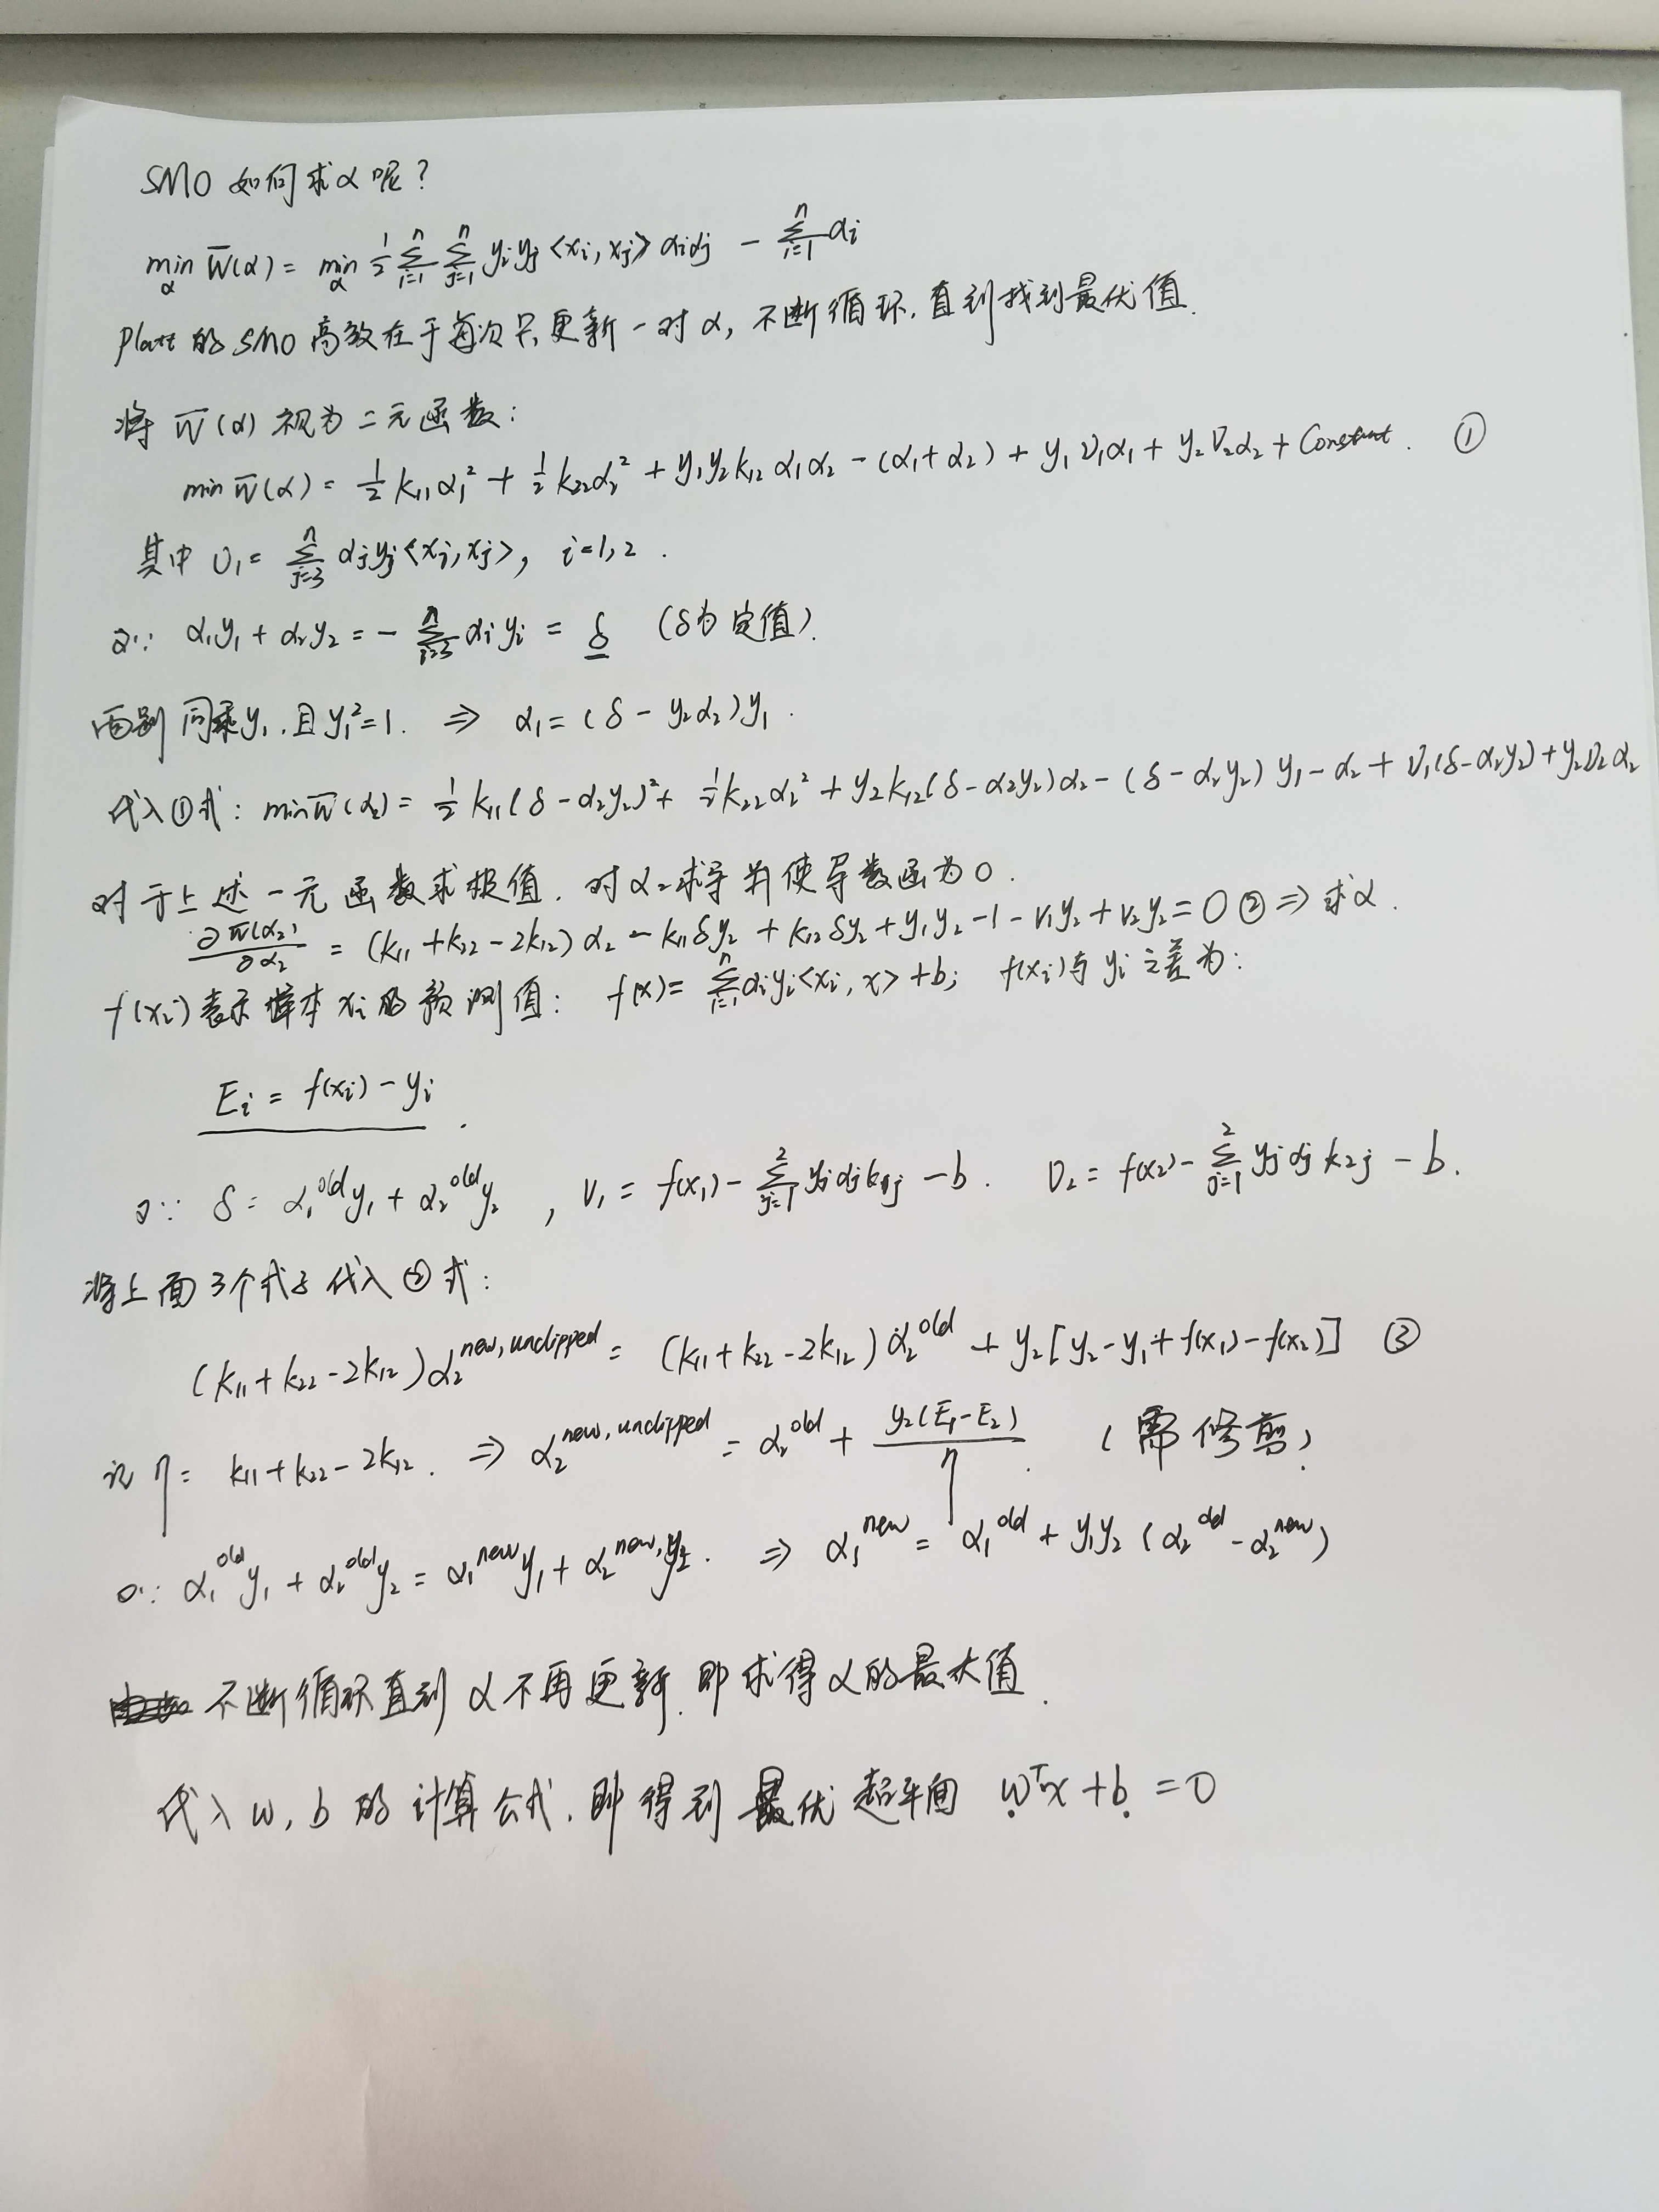 SMO 如何求α呢?
min_α W̄(α) = min_α ½ Σ_{i=1}^{n} Σ_{j=1}^{n} yᵢyⱼ<xᵢ, xⱼ> αᵢαⱼ − Σ_{i=1}^{n} αᵢ
Platt 的 SMO 高效在于每次只更新一对α, 不断循环, 直到找到最优值.
将 W̄(α) 视为二元函数:
min W̄(α) = ½ k₁₁α₁² + ½ k₂₂α₂² + y₁y₂k₁₂α₁α₂ − (α₁+α₂) + y₁v₁α₁ + y₂v₂α₂ + Constant. ①
其中 υ₁ = Σ_{j=3}^{n} αⱼyⱼ<xᵢ, xⱼ>, i=1,2.
又∵ α₁y₁ + α₂y₂ = − Σ_{i=3}^{n} αᵢyᵢ = δ (δ为定值).
两边同乘y₁, 且y₁²=1. ⇒ α₁ = (δ − y₂α₂)y₁.
代入①式: min W̄(α₂) = ½ k₁₁(δ−α₂y₂)² + ½ k₂₂α₂² + y₂k₁₂(δ−α₂y₂)α₂ − (δ−α₂y₂)y₁ − α₂ + v₁(δ−α₂y₂) + y₂v₂α₂
对于上述一元函数求极值, 对α₂求导并使导数函为0.
∂W̄(α₂)/∂α₂ = (k₁₁+k₂₂−2k₁₂)α₂ − k₁₁δy₂ + k₁₂δy₂ + y₁y₂ − 1 − v₁y₂ + v₂y₂ = 0 ② ⇒ 求α.
f(xᵢ)表示样本xᵢ的预测值: f(x) = Σ_{i=1}^{n} αᵢyᵢ<xᵢ, x> + b; f(xᵢ)与yᵢ之差为:
Eᵢ = f(xᵢ) − yᵢ.
又∵ δ = α₁^{old}y₁ + α₂^{old}y₂, v₁ = f(x₁) − Σ_{j=1}^{2} yⱼαⱼk₁ⱼ − b. v₂ = f(x₂) − Σ_{j=1}^{2} yⱼαⱼk₂ⱼ − b.
将上面3个式子代入②式:
(k₁₁+k₂₂−2k₁₂)α₂^{new,unclipped} = (k₁₁+k₂₂−2k₁₂)α₂^{old} + y₂[y₂−y₁+f(x₁)−f(x₂)] ③
记 η = k₁₁+k₂₂−2k₁₂. ⇒ α₂^{new,unclipped} = α₂^{old} + y₂(E₁−E₂)/η. (需修剪).
又∵ α₁^{old}y₁ + α₂^{old}y₂ = α₁^{new}y₁ + α₂^{new}y₂. ⇒ α₁^{new} = α₁^{old} + y₁y₂(α₂^{old} − α₂^{new})
不断循环直到α不再更新, 即求得α的最大值.
代入w, b的计算公式, 即得到最优超平面 wᵀx + b = 0